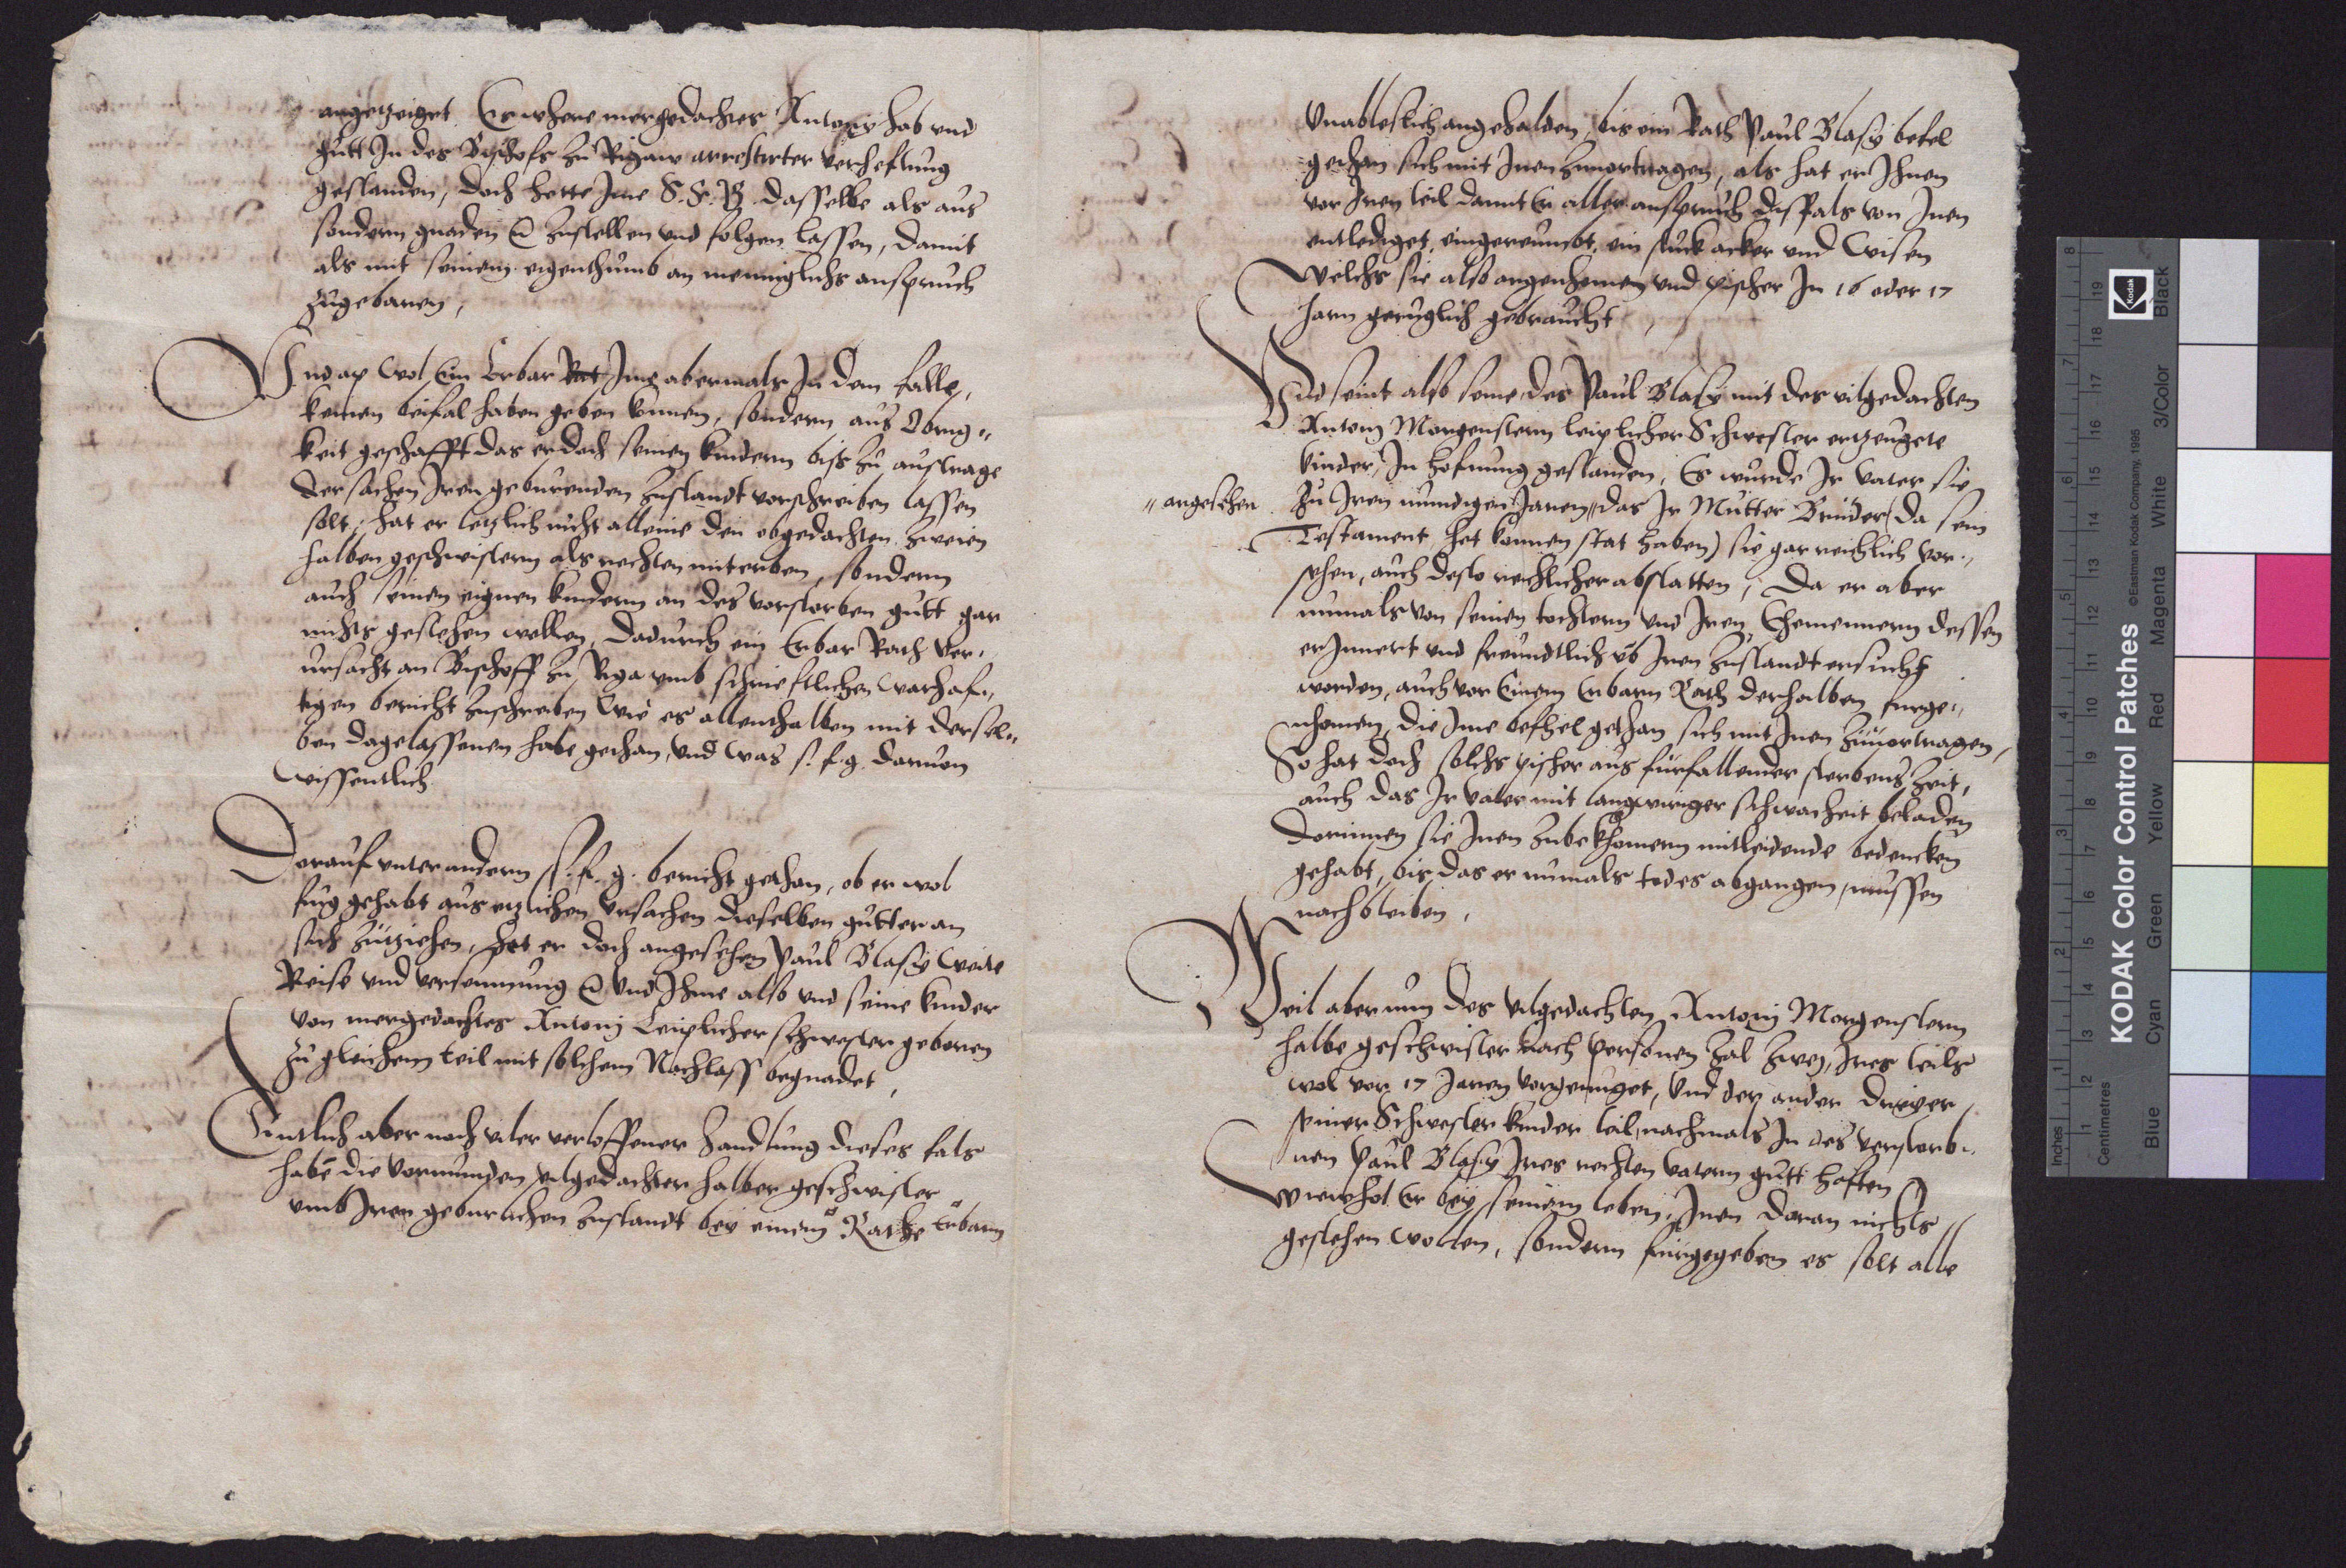 angetzeiget. Er where mergedachter Antony hab und
gutt In des Bischofs zu Rigaw arrestirter verheftung
gestanden, doch hette Ime S. F. G. dasselbe als aus
sondern gnaden zustellen und folgen lassen, damit
als mit seinem eigenthumb an menniglichs anspruch
zugebaren,
Und ap wol Ein Erbar Rat Ime abermals In dem falle,
keinen beifal haben geben konnen, sondern aus Obrig"
keit geschafft das er doch seinen kindern biss zu austrage
der sachen Iren geburenden zustandt vorschreiben lassen
solt, hat er letzlich nicht alleine den obgedachten zweien
halben geschwistern als rechten miterben, sondern
auch seinen eignen kindern an des vorstorben gutt gar
nichts gestehen wollen, Dadurch ein Erbar Rath ver"
ursacht an Bischoff zu Riga umb schrieftlichen warhaf"
tigen bericht zuschreiben wie es allenthalben mit dersel"
ben dagelassenen habe gethan, und was s. f. g. daruon
wissentlich
Darauf unter andern S. f. g. bericht gethan, ob er wol
fug gehabt aus etzlichen ursachen dieselben gutter an
sich zutziehen, Het er doch angesehen Paul Blasy weite
Reise und versaumung und Ihme also und seine kinder
von mergedachtes Antonij Leiplicher schwester geboren
zu gleichem teil mit solchem Nachlass begnadet,
Entlich aber nach viler verloffener handlung dieses fals
haben die vormunden vilgedachter halber geschwister
umb Iren geburlichen zustandt bey einem Rathe Erbarn
Unableslich angehalden, bis ein Rath Paul Blasy befel
gethan sich mit Inen zuuortragen, als hat er Ihnen
vor Iren teil damit Er aller anspruch dissfals von Inen
entlediget, eingereumbt, ein stuck acker und wisen
Welchs sie also angenhomen und pischer In 16 oder 17
Jarn geruglich gebraucht,
Und seint also seine des Paul Blasy mit des vilgedachten
Antonij Morgenstern leiplicher Schwester ertzeugete
kinder, In hofnung gestanden, Es wurde Ir vater sie
" angesehen
zu Iren mundigen Jaren " das Ir Mutter Bruder (da sein
Testament het konnen stat haben) sie gar reichlich vor"
sehen, auch desto reichlicher abstatten, Da er aber
numals von seinen tochtern und Iren Ehemennern dessen
erInnert und freundtlich umb Iren zustandt ersucht
worden, auch vor Einem Erbarn Rath derhalben furge"
nhomen, die Ime befhel gethan sich mit Inen zuuortragen,
So hat doch solchs pischer aus furfallender sterbens zeit,
auch das Ir vater mit langwiriger schwacheit beladen
Dorinnen sie Inen zubekhomern mitleidende bedencken
gehabt, bis das er numals todes abgangen, mussen
nachbleiben,
Weil aber nun des vilgedachten Antonij Morgenstern
halbe geschwister nach personen zal zwej, Ires teils
wol vor 17 Jaren vorgenuget, Und der ander dreier
seiner Schwester kinder teil, nachmals In des verstorb"
nen Paul Blasy Ires rechten vatern gutt haften
Wiewhol Er bey seinem leben, Inen daran nichts
gestehen wollen, sondern furgegeben es solt alle
Inches
Centimetres
KODAK Color Control Patches
©Eastman Kodak Company, 1995
Kodak
Blue Cyan Green Yellow Red Magenta White 3/Color Black